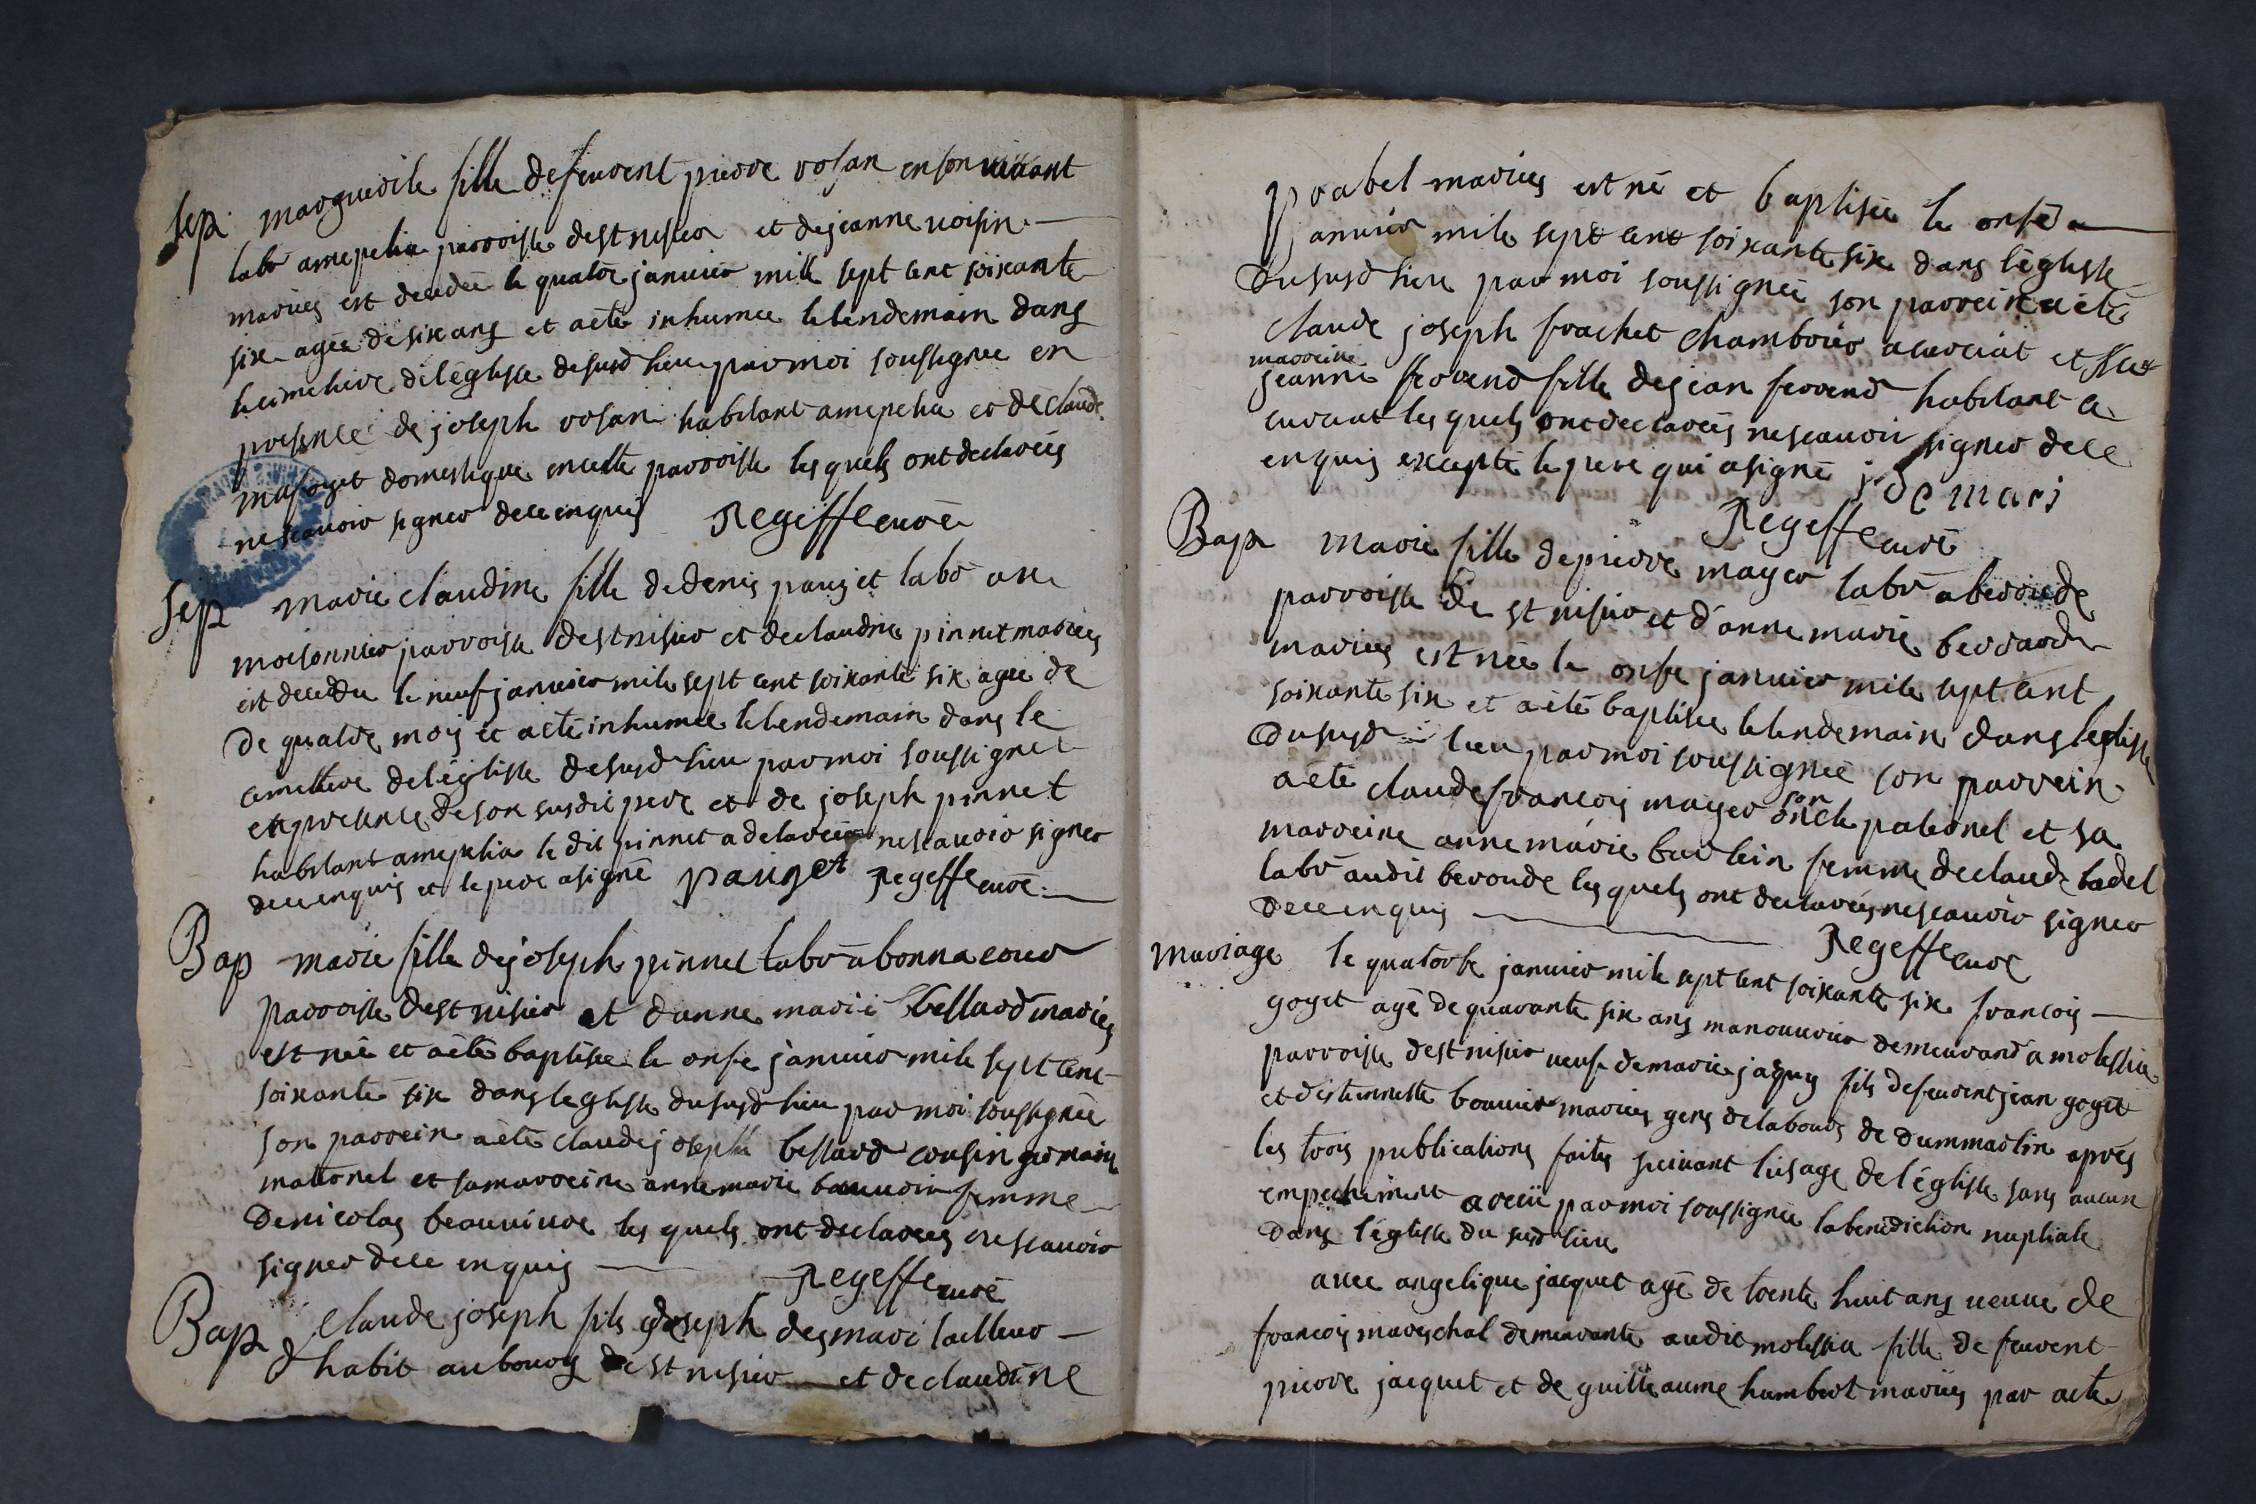 Sep. marguerite fille de feuvent pierre rosan en son vivant
labr amepelia parroisse de st nisier et de jeanne voisin
mariés est decedée le quatre janvier mille sept cent soixante
six agée de six ans et a été inhumee le lendemain dans
le cimetiere de l'églisse de susd lieu par moi soussignee en
presence de joseph rosan habitant amepelia et de claude
masoyet domestique en cette parroisse les quels ont declarées
ne scavoir signer de ce enquis Regeffe curé
Sep marie claudine fille de denis pauget labr au
moisonnier parroisse de st nisier et de claudine pinnet mariées
est decedee le neuf janvier mile sept cent soixante six agee de
de quatre mois et a eté inhumee le lendemain dans le
cimettiere de l'églisse de susd lieu par moi soussigné
en presence de son susdit pere et de joseph pinnet
habitant amepelia le dit pinnet a delarée ne scavoir signer
de ce enquis et le pere a signé pauget Regeffe curé
Bap marie fille de joseph pinnet labr a bonnacour
parroisse de st nisier et d'anne marie bellard mariés
est née et a été baptisee le onse janvier mile sept cent
soixante six dans leglisse du susd lieu par moi soussignée
son parrein a été claude joseph bellard cousin germain
maternel et sa marreine anne marie femme
de nicolas beauvivre les quels ont declarees ne scavoir
signer de ce enquis Regeffe curé
Bap Claude joseph fils joseph desmari tailleur
d'habit au bourg de st nisier et de claudine
prabel mariés est né et baptisée le onse
janvier mile sept cent soixante six dans l'églisse
du susd lieu par moi soussignée son parrein a été
claude joseph frachet chambrier a curciat et sa
marreine
jeanne ferrend fille de jean ferrend habitant a
curciat les quels ont declarées ne scavoir signer de ce
enquis excepté le pere qui a signé j de mari
Regeffe curé
Bap marie fille de pierre mayer labr a beroude
parroisse de st nisier et d'anne marie berrard
mariés est née le onse janvier mile sept cent
soixante six et a été baptisee le lendemain dans leglisse
du susd lieu par moi soussignée son parrein
a été claude francois mayer son oncle paternel et sa
marreine anne marie femme de claude badel
labr audit beroude les quels ont declarées ne scavoir signer
de ce enquis Regeffe curé
Mariage le quatorse janvier mile sept cent soixante six francois
goyet agé de quarante six ans manouvrier demeurand a molissia
parroisse de st nisier veuf de marie jaquy fils de feuvent jean goyet
et d'estiennette bouvier mariés gens de labour de dummartin après
les trois publications faites suivant l'usage de l'églisse sans aucun
empechement a reçû par moi soussignée la benediction nuptiale
dans l'églisse du susd lieu
avec angelique jacquet agé de trente huit ans veuve de
francois mareschal demeurante audit molissia fille de feuvent
pierre jacquet et de guilleaume humbert mariés par acte